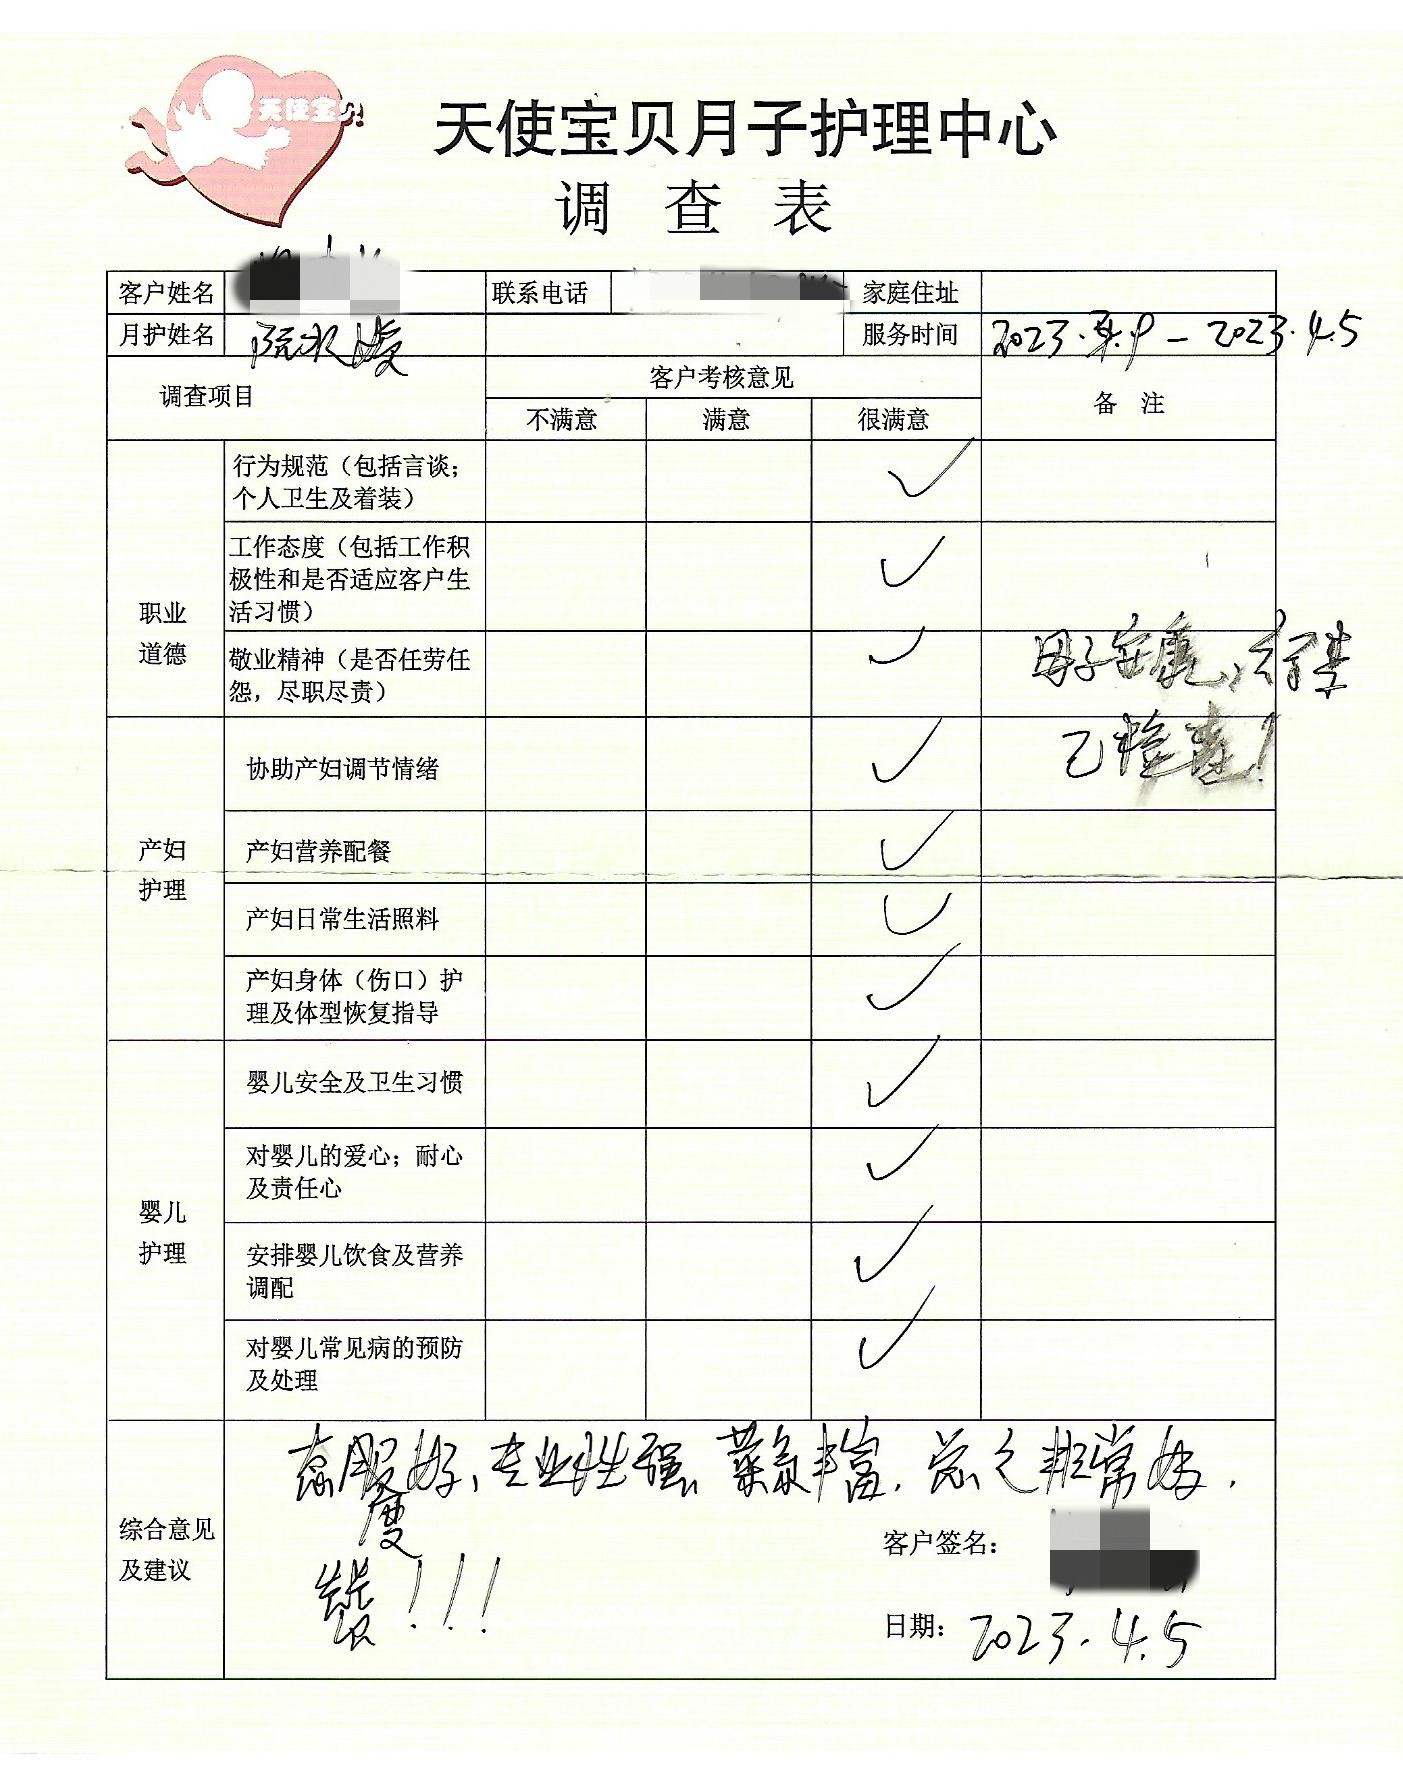 天使宝贝
天使宝贝月子护理中心
调 查 表
客户姓名 联系电话 家庭住址
月护姓名 服务时间 2023. .9 - 2023.4.5
调查项目 客户考核意见 备 注
不满意 满意 很满意
职业
道德
行为规范（包括言谈；
个人卫生及着装）
工作态度（包括工作积
极性和是否适应客户生
活习惯）
敬业精神（是否任劳任
怨，尽职尽责）
母子安康，行李
已检查！
产妇
护理
协助产妇调节情绪
产妇营养配餐
产妇日常生活照料
产妇身体（伤口）护
理及体型恢复指导
婴儿
护理
婴儿安全及卫生习惯
对婴儿的爱心；耐心
及责任心
安排婴儿饮食及营养
调配
对婴儿常见病的预防
及处理
综合意见
及建议
态度好、专业性强、菜系丰富，总之非常好，
赞！！！
客户签名：
日期：2023.4.5